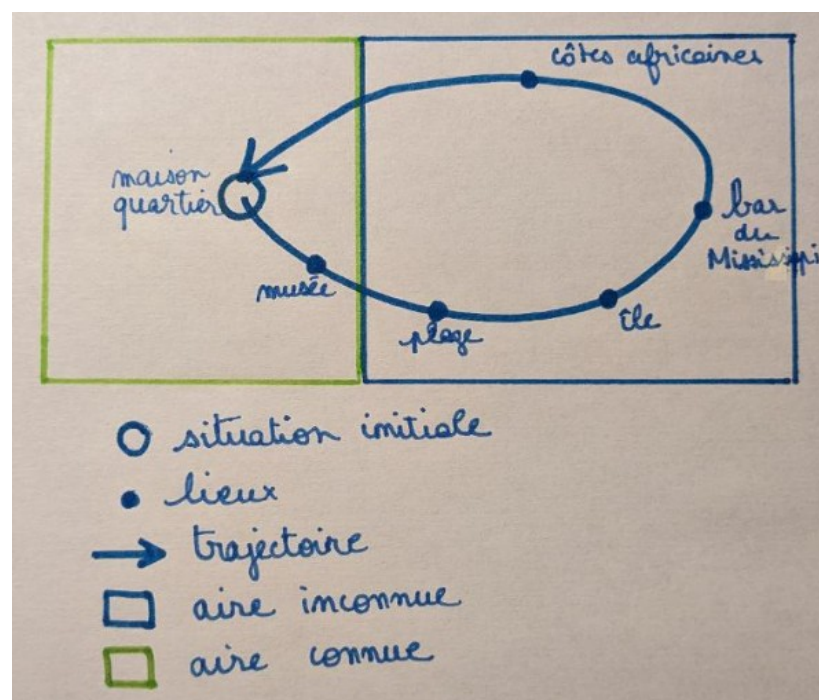 côtes africaines
maison
quartier
bar
du
Mississippi
musée
plage
île
situation initiale
lieux
trajectoire
aire inconnue
aire connue